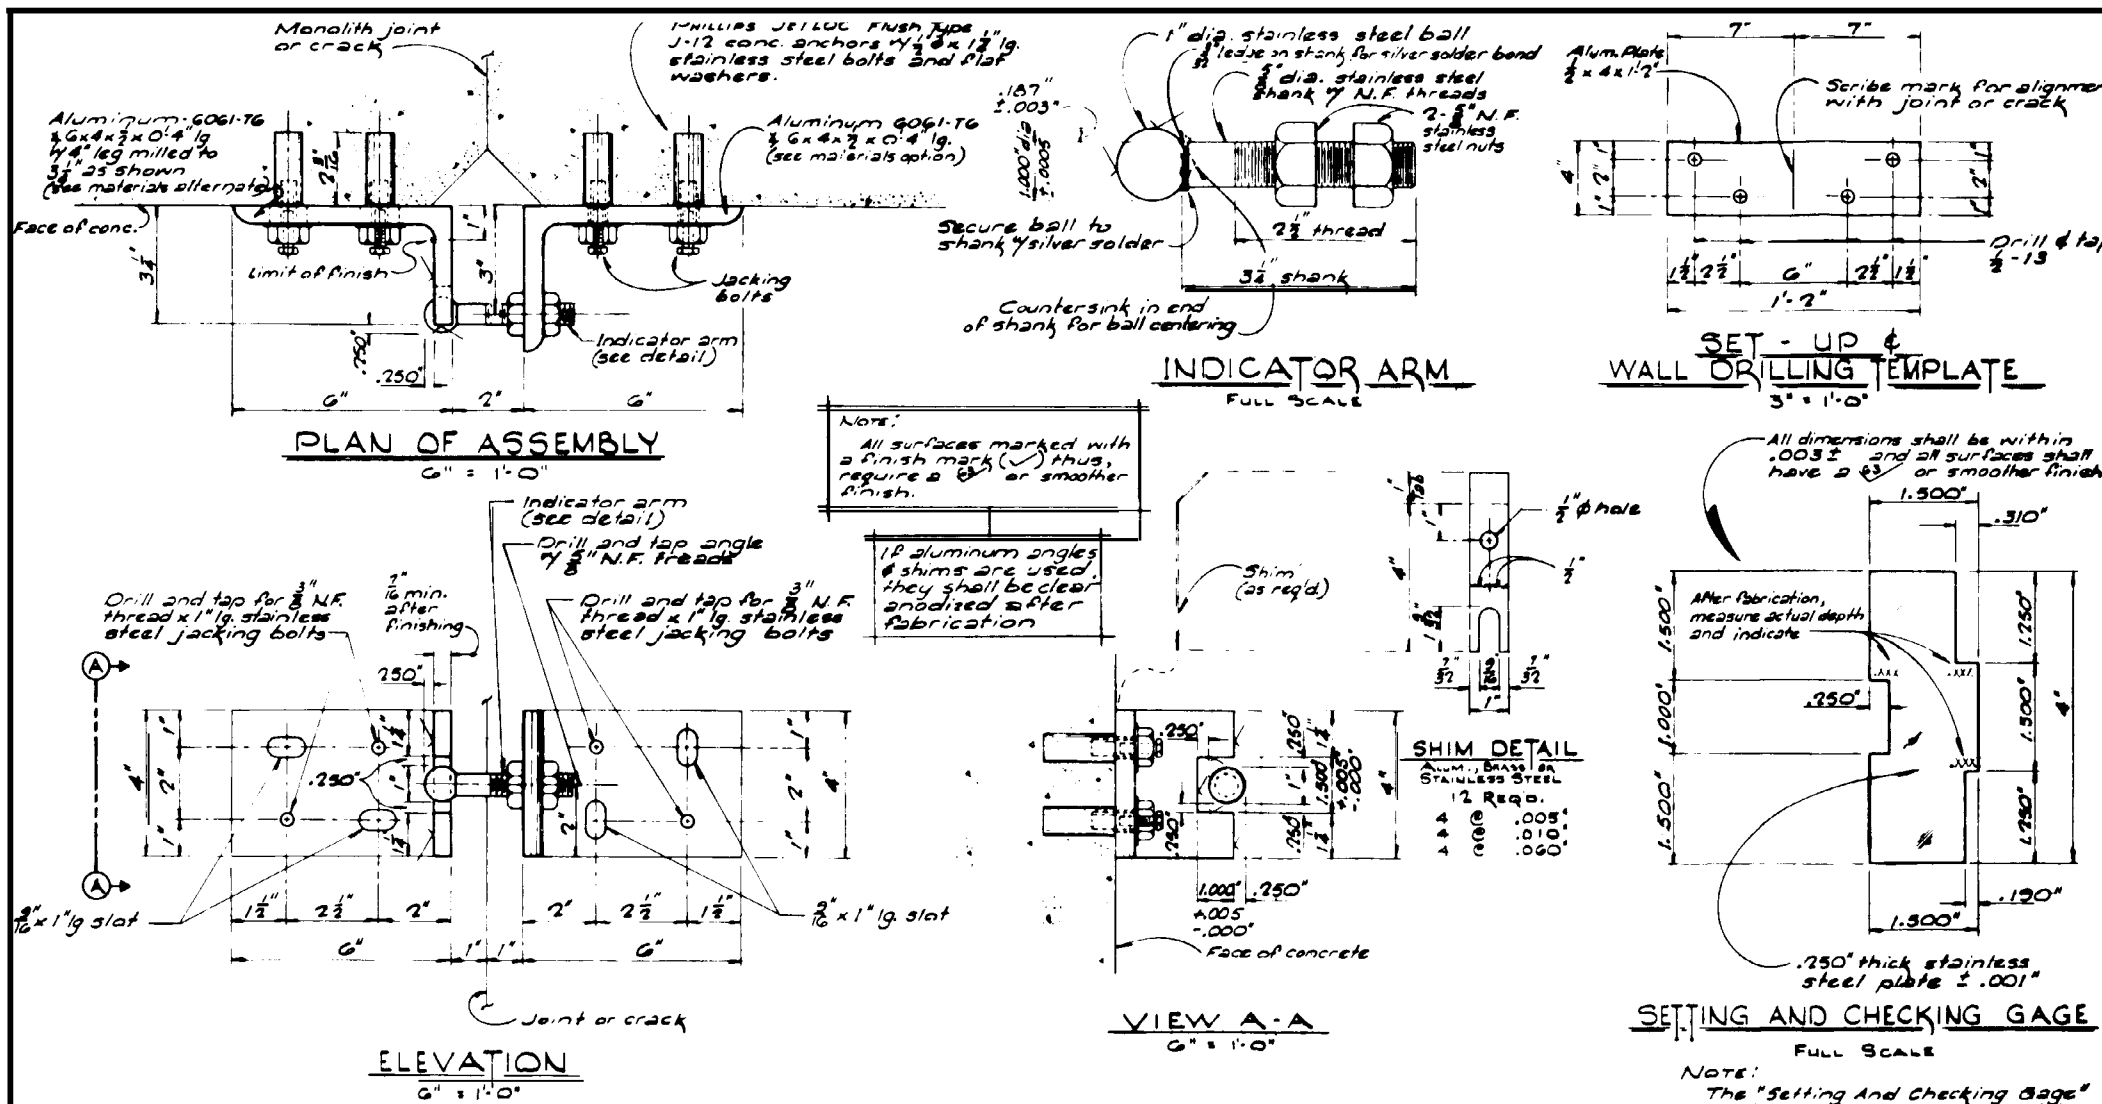 Monolith joint
or crack
PHILLIPS JETLOC Flush Type
J-12 conc. anchors w/ 1/2" φ x 1 1/2" lg.
stainless steel bolts and flat
washers.
Aluminum-6061-T6
6x4x1/2 x 0'-4" lg
w/4" leg milled to
3 1/4" as shown
(see materials alternate)
2 9/16"
Aluminum 6061-T6
6x4x1/2 x 0'-4" lg.
(see materials option)
Face of conc.
3 1/4"
1"
3"
Limit of finish
Jacking
bolts
Indicator arm
(see detail)
.250"
.250"
6"
2"
6"
PLAN OF ASSEMBLY
6" = 1'-0"
1" dia. stainless steel ball
1/32" ledge on shank for silver solder bond
5/8" dia. stainless steel
shank w/ N.F. threads
2-5/8" N.F.
stainless
steel nuts
.187"
±.003"
1.000" dia
±.0005
Secure ball to
shank w/silver solder
2 1/2" thread
3 1/4" shank
Countersink in end
of shank for ball centering
INDICATOR ARM
FULL SCALE
7"
7"
Alum. Plate
1/2 x 4 x 1'-2"
Scribe mark for alignmen
with joint or crack
4"
1"
2"
1"
1"
2"
1"
Drill & tap
1/2-13
1 1/2"
2 1/2"
6"
2 1/2"
1 1/2"
1'-2"
SET - UP &
WALL DRILLING TEMPLATE
3" = 1'-0"
NOTE:
All surfaces marked with
a finish mark (✓) thus,
require a 63✓ or smoother
finish.
If aluminum angles
& shims are used
they shall be clear
anodized after
fabrication
Indicator arm
(see detail)
Drill and tap angle
w/ 5/8" N.F. treads
Drill and tap for 3/8" N.F.
thread x 1" lg. stainless
steel jacking bolts
7/16" min.
after
finishing
Drill and tap for 3/8" N.F.
thread x 1" lg. stainless
steel jacking bolts
A
A
.250"
.250"
4"
1"
2"
1"
1 1/2"
1"
1 1/2"
2"
1"
2"
1"
4"
9/16" x 1" lg slot
1 1/2"
2 1/2"
2"
2"
2 1/2"
1 1/2"
9/16" x 1" lg. slot
6"
1"
1"
6"
Joint or crack
ELEVATION
6" = 1'-0"
Shim
(as reqd.)
1" Tab
1"
4"
1/2" φ hole
1/2"
1 9/32"
7/32"
9/16"
7/32"
1"
SHIM DETAIL
ALUM., BRASS OR
STAINLESS STEEL
12 REQD.
4 @ .005"
4 @ .010"
4 @ .060"
.250"
.250"
.250"
.250"
1"
1.500
+.005"
-.000"
4"
1.000"
+.005
-.000"
.250"
Face of concrete
VIEW A-A
6" = 1'-0"
All dimensions shall be within
.003± and all surfaces shall
have a 63✓ or smoother finish
1.500"
.310"
After fabrication,
measure actual depth
and indicate
.xxx
.xxx
.xxx
1.500"
1.000"
1.500"
.250"
1.250"
1.500"
1.250"
4"
.190"
1.500"
.250" thick stainless
steel plate ± .001"
SETTING AND CHECKING GAGE
FULL SCALE
NOTE:
The "Setting And Checking Gage"